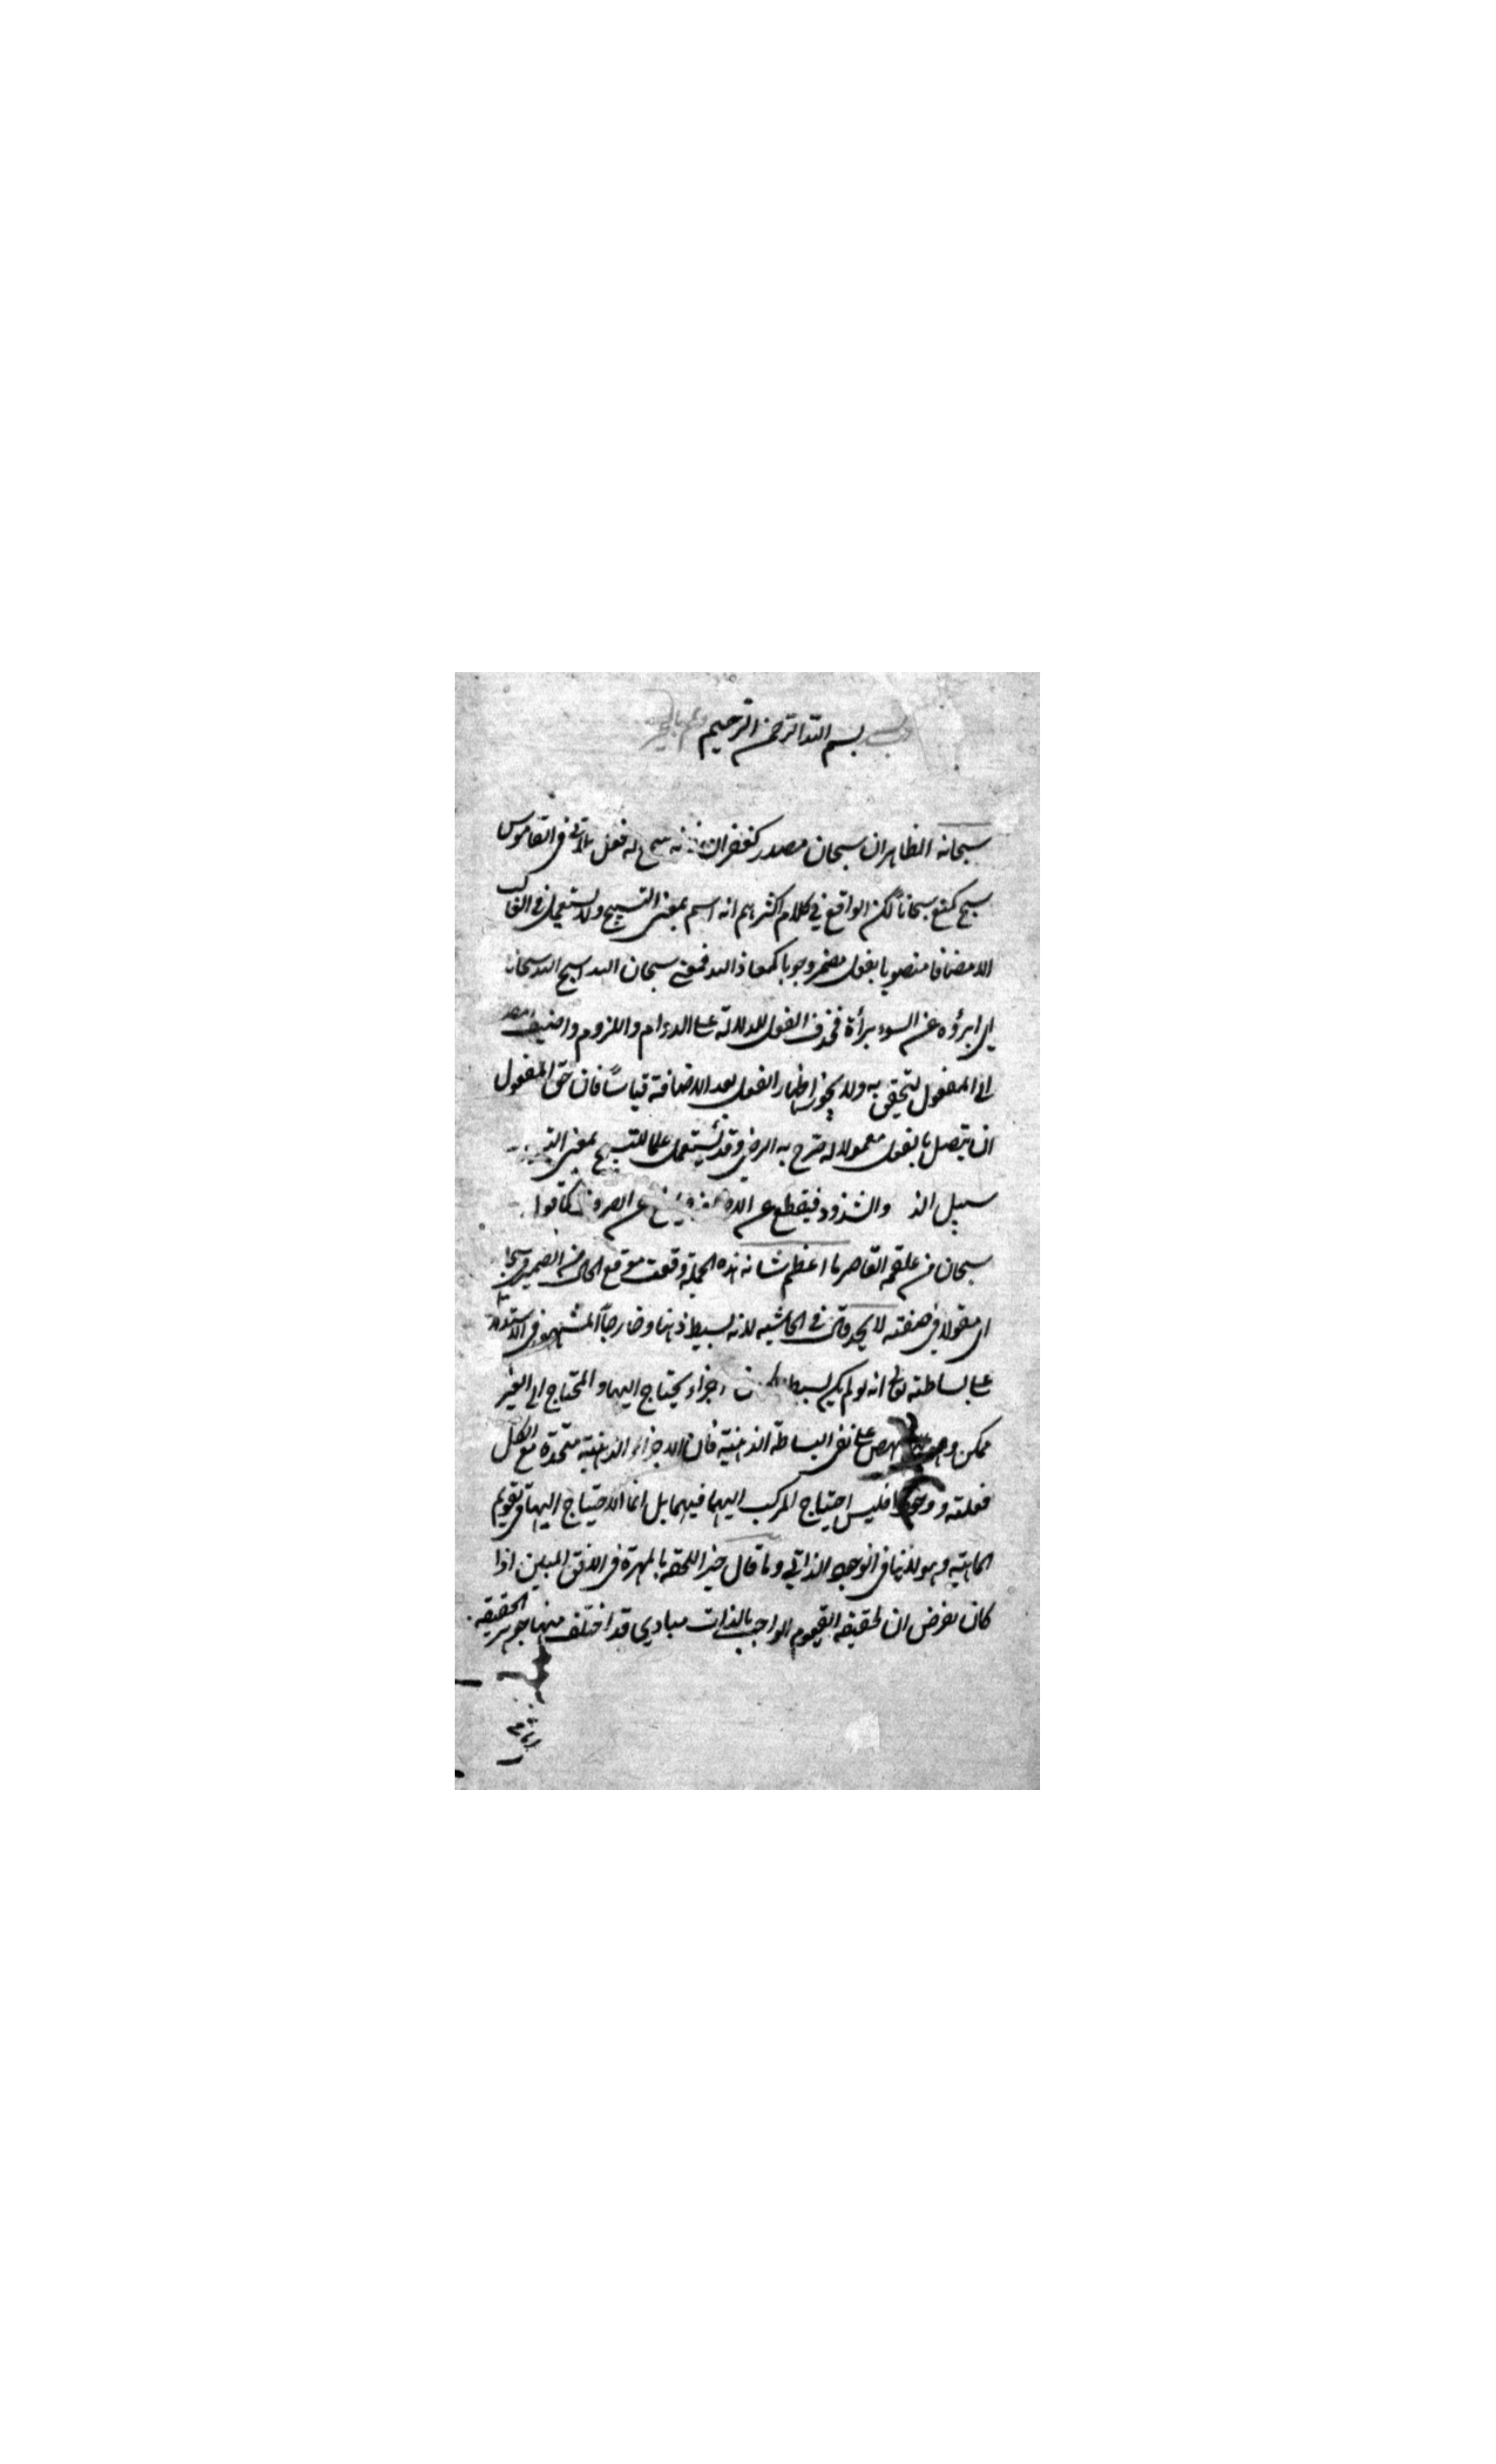 بسم الله الرحمن الرحيم
سبحانه الظاهر ان سبحان مصدر كغفران له فعل ثلاثي في القاموس
سبح كمنع سبحانا لكن الواقع في كلام اكثرهم انه اسم بمعنى التسبيح ولا يستعمل في الغالب
الا مضافا منصوبا بفعل مضمر وجوبا كمعاذ الله فمعنى سبحان الله اسبح الله سبحانا
اي ابرؤه عن السوء برأة فحذف الفعل للدلالة على الدوام واللزوم واضيف المصدر
الى المفعول ولا يجوز اظهار الفعل بعد الاضافة قياسًا فان حق المفعول
ان يتصل بالفعل معمولا له صرح به الرضي وقد يستعمل علما للتسبيح بمعنى
سبيل والشذوذ فيقطع عن عن الصرف كما قالوا
سبحان من علقمة الفاخر ما اعظم شانه هذه الجملة وقعت موقع الحال من الضمير في سبحانه
اي مقولا في صفته لا يحد قال في الحاشية لانه بسيط ذهنا وخارجًا المشهور في الاستدلال
على بساطته تعالى انه لو لم يكن بسيطا اجزاء يحتاج اليها والمحتاج الى الغير
ممكن على نفي البساطة الذهنية فان الاجزاء الذهنية متحدة مع الكل
فعلية ووجودا فليس احتياج المركب اليها فيهما بل انما الاحتياج اليها في تقويم
الماهية وهو لا ينافي الوجوب الذاتي وما قال خير اللحقة بالمهرة في الافق المبين اذا
كان يفرض ان لحقيقة القيوم الواجب بالذات مبادي قد اختلف منها جوهر الحقيقة